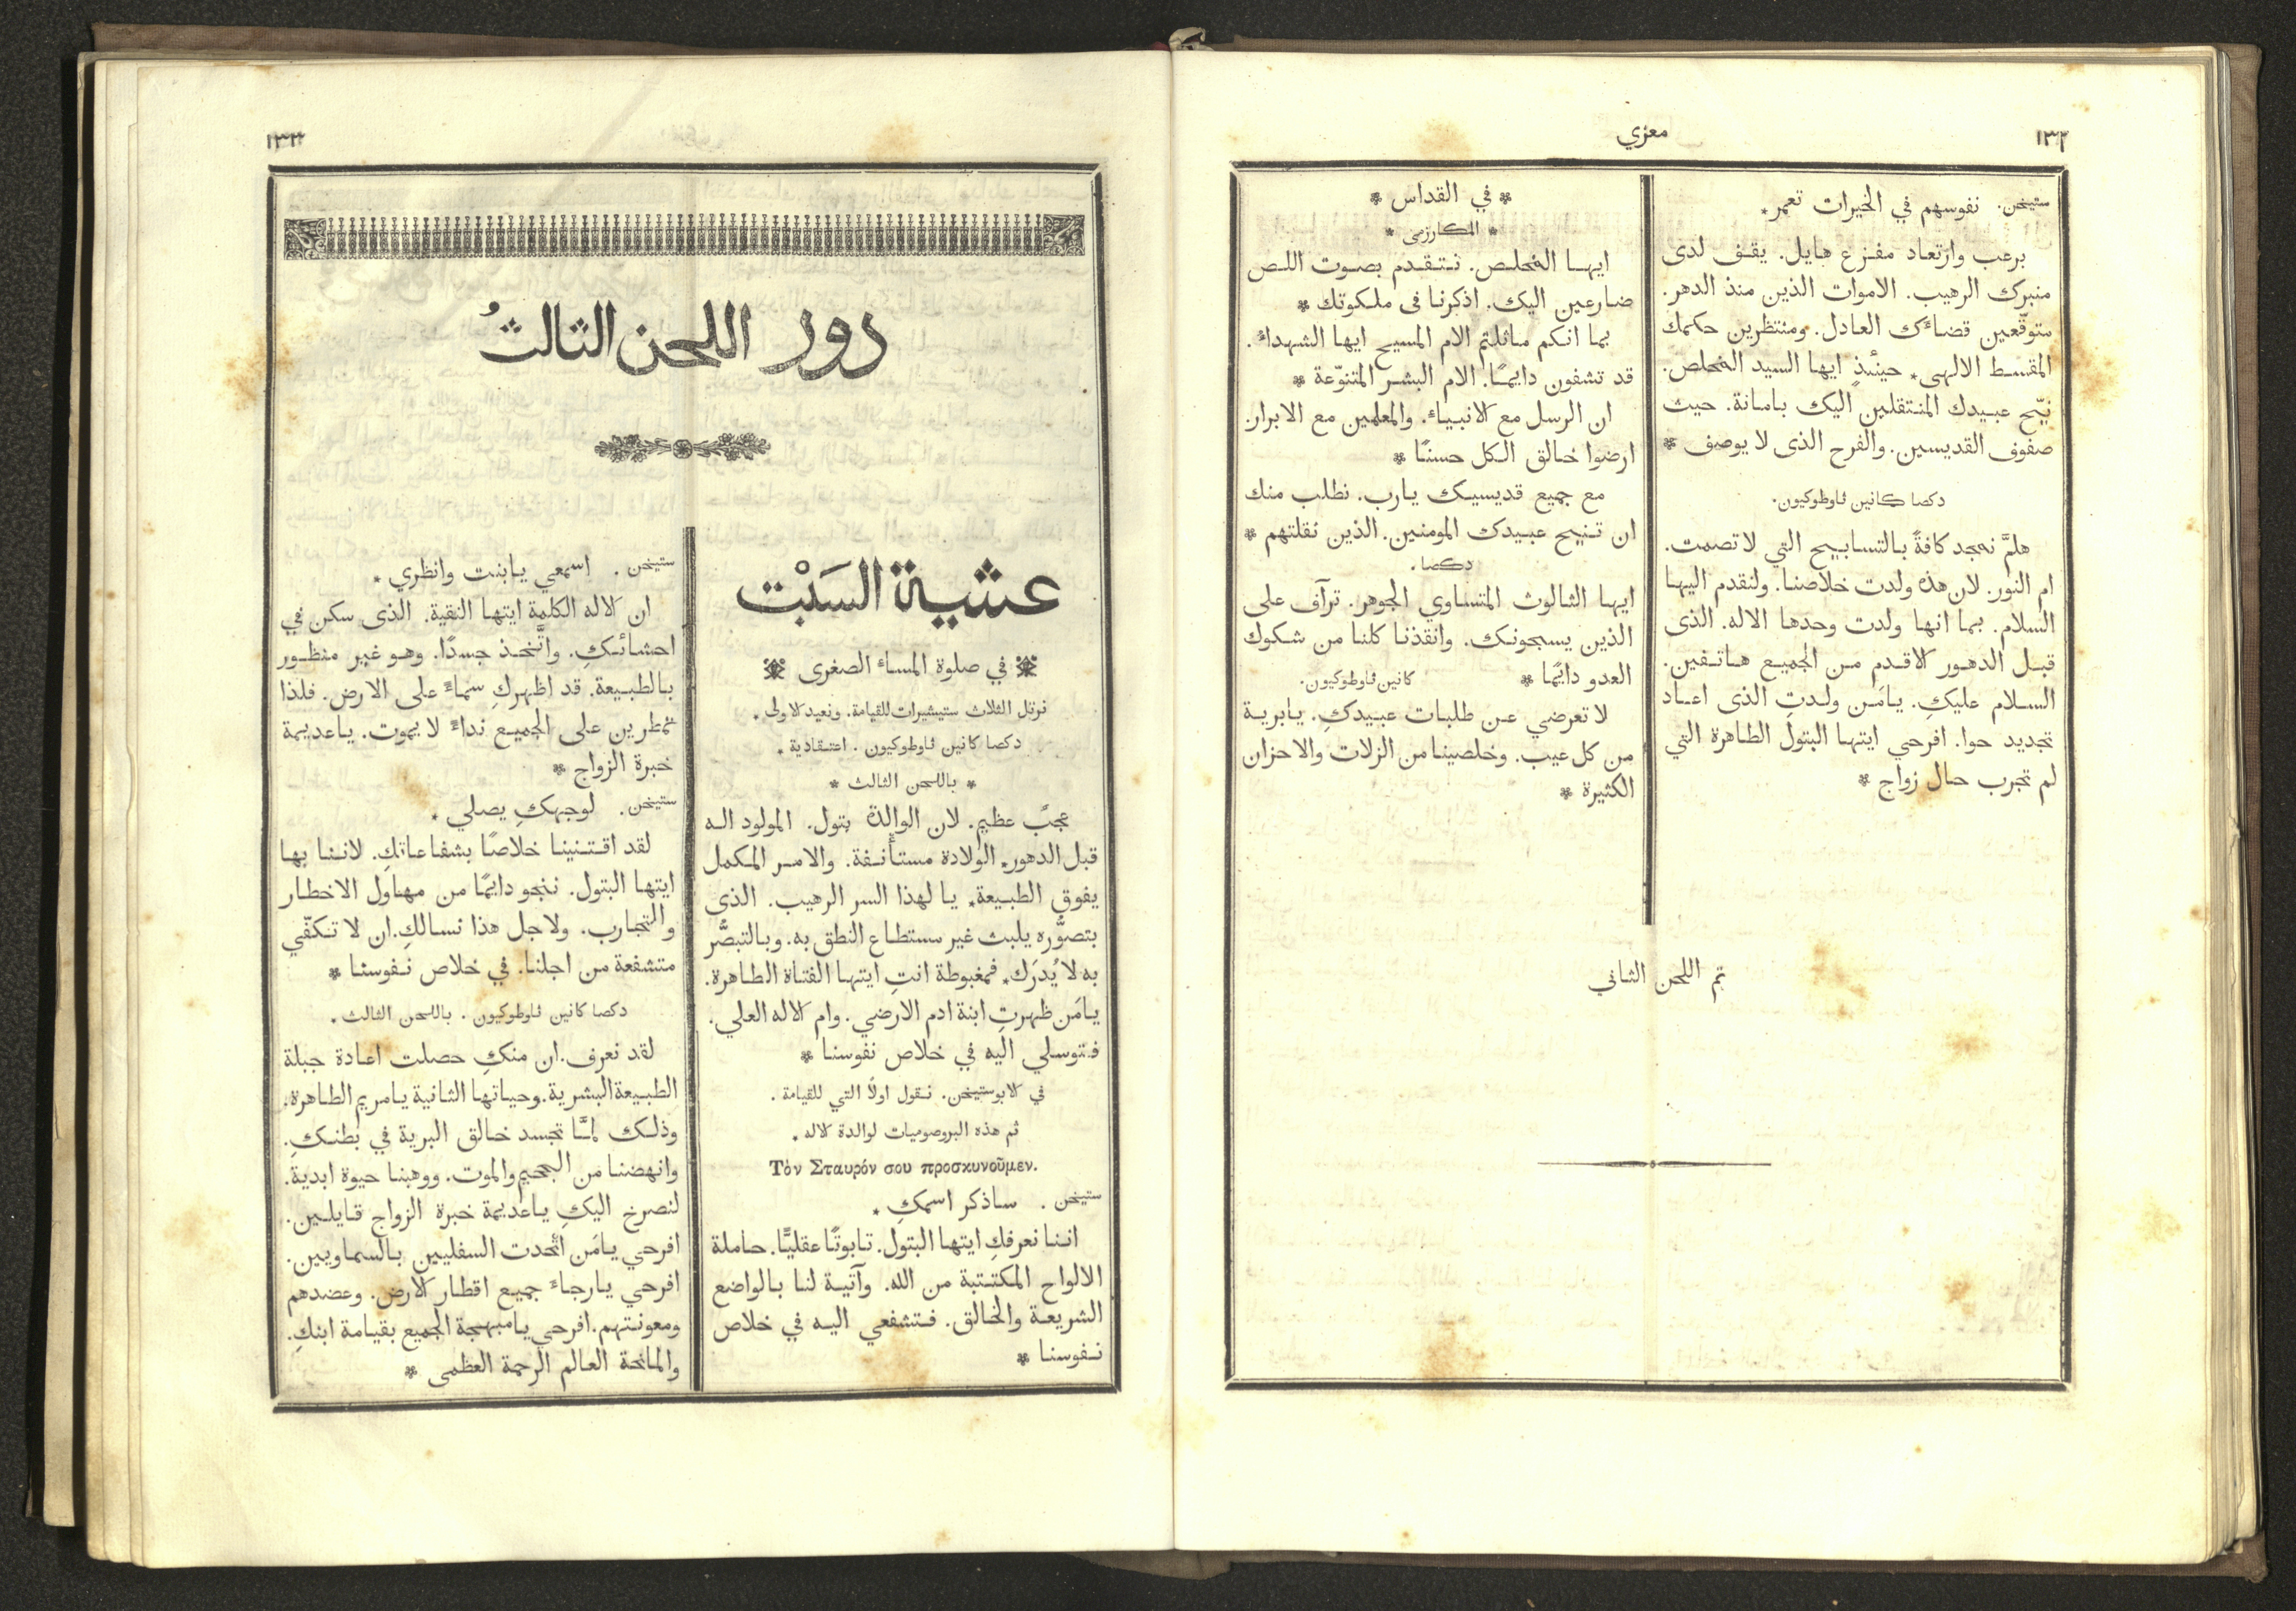 ١٣٢
معزي
ستيخن. نفوسهم في الخيرات تعمر٭
برعب وارتعاد مفزع هايل. يقف لدى
منبرك الرهيب. الاموات الذين منذ الدهر.
متوقّعين قضاءَك العادل. ومنتظرين حكمك
المقسط الالهى٭ حينئذٍ ايها السيد المخلص.
نيّح عبيدك المنتقلين اليك بامانة. حيث
صفوف القديسين. والفرح الذى لا يوصف ٭
دكصا كانين ثاوطوكيون.
هلمَّ نمجد كافةً بالتسابيح التي لا تصمت.
ام النور. لان هذه ولدت خلاصنا. ولنقدم اليها
السلام. بما انها ولدت وحدها الاله. الذى
قبل الدهور الاقدم من الجميع هاتفين.
السلام عليكِ. يامَن ولدتِ الذى اعاد
تجديد حوا. افرحي ايتها البتول الطاهرة التي
لم تجرب حال زواج ٭
٭ في القداس ٭
٭ المكارزمى ٭
ايها المخلص. نتقدم بصوت اللص
ضارعين اليك. اذكرنا فى ملكوتك ٭
بما انكم ماثلتم الام المسيح ايها الشهداءُ.
قد تشفون دايمًا. الام البشر المتنوّعة ٭
ان الرسل مع الانبياء. والمعلمين مع الابرار.
ارضوا خالق الكل حسنًا ٭
مع جميع قديسيك يارب. نطلب منك
ان تنيح عبيدك المومنين. الذين نقلتهم ٭
دكصا.
ايها الثالوث المتساوي الجوهر. ترآف على
الذين يسبحونك. وانقذنا كلنا من شكوك
العدو دايمًا ٭ كانين ثاوطوكيون.
لا تعرضي عن طلبات عبيدكِ. يابرية
من كل عيب. وخلصينا من الزلات والاحزان
الكثيرة ٭
تم اللحن الثاني
١٣٣
دور اللحن الثالثُ
عشية السَبْت
في صلوة المساء الصغرى
نرتل الثلاث ستيشيرات للقيامة. ونعيد الاولى٭
دكصا كانين ثاوطوكيون. اعتقادية٭
٭ باللحن الثالث ٭
عجبٌ عظيم. لان الوالدة بتول. المولود اله
قبل الدهور٭ الولادة مستأنفة. والامر المكمل
يفوق الطبيعة٭ يا لهذا السر الرهيب. الذى
بتصوُّره يلبث غير مستطاع النطق به. وبالتبصُّر
به لا يُدرَك٭ فمغبوطة انتِ ايتها الفتاة الطاهرة.
يامَن ظهرتِ ابنة ادم الارضي. وام الاله العلي.
فتوسلي اليه في خلاص نفوسنا ٭
في الابوستيخن. نقول اولاً التي للقيامة.
ثم هذه البروصوميات لوالدة الاله٭
Τὸν Σταυρόν σου προσκυνοῦμεν.
ستيخن. ساذكر اسمكِ٭
اننا نعرفكِ ايتها البتول. تابوتًا عقليًّا. حاملة
الالواح المكتتبة من الله. وآتية لنا بالواضع
الشريعة والخالق. فتشفعي اليه في خلاص
نفوسنا ٭
ستيخن. اسمعي يابنت وانظري٭
ان الاله الكلمة ايتها النقية. الذى سكن في
احشائكِ. واتَّخذ جسدًا. وهو غير منظور
بالطبيعة. قد اظهركِ سماءً على الارض. فلذا
تمطرين على الجميع نداءً لا يموت. ياعديمة
خبرة الزواج ٭
ستيخن. لوجهكِ يصلي٭
لقد اقتنينا خلاصًا بشفاعاتكِ. لاننا بها
ايتها البتول. ننجو دايمًا من مهاول الاخطار
والتجارب. ولاجل هذا نسالكِ. ان لا تكفّي
متشفعة من اجلنا. في خلاص نفوسنا ٭
دكصا كانين ثاوطوكيون. باللحن الثالث٭
لقد نعرف. ان منكِ حصلت اعادة جبلة
الطبيعة البشرية. وحياتها الثانية يامريم الطاهرة.
وذلك لمَّا تجسد خالق البرية في بطنكِ.
وانهضنا من الجحيم والموت. ووهبنا حيوة ابدية.
لنصرخ اليكِ ياعديمة خبرة الزواج قايلين.
افرحي يامَن اتَّحدت السفليين بالسماويين.
افرحي يارجاءَ جميع اقطار الارض. وعضدهم
ومعونتهم. افرحي يامبهجة الجميع بقيامة ابنكِ.
والمانحة العالم الرحمة العظمى ٭